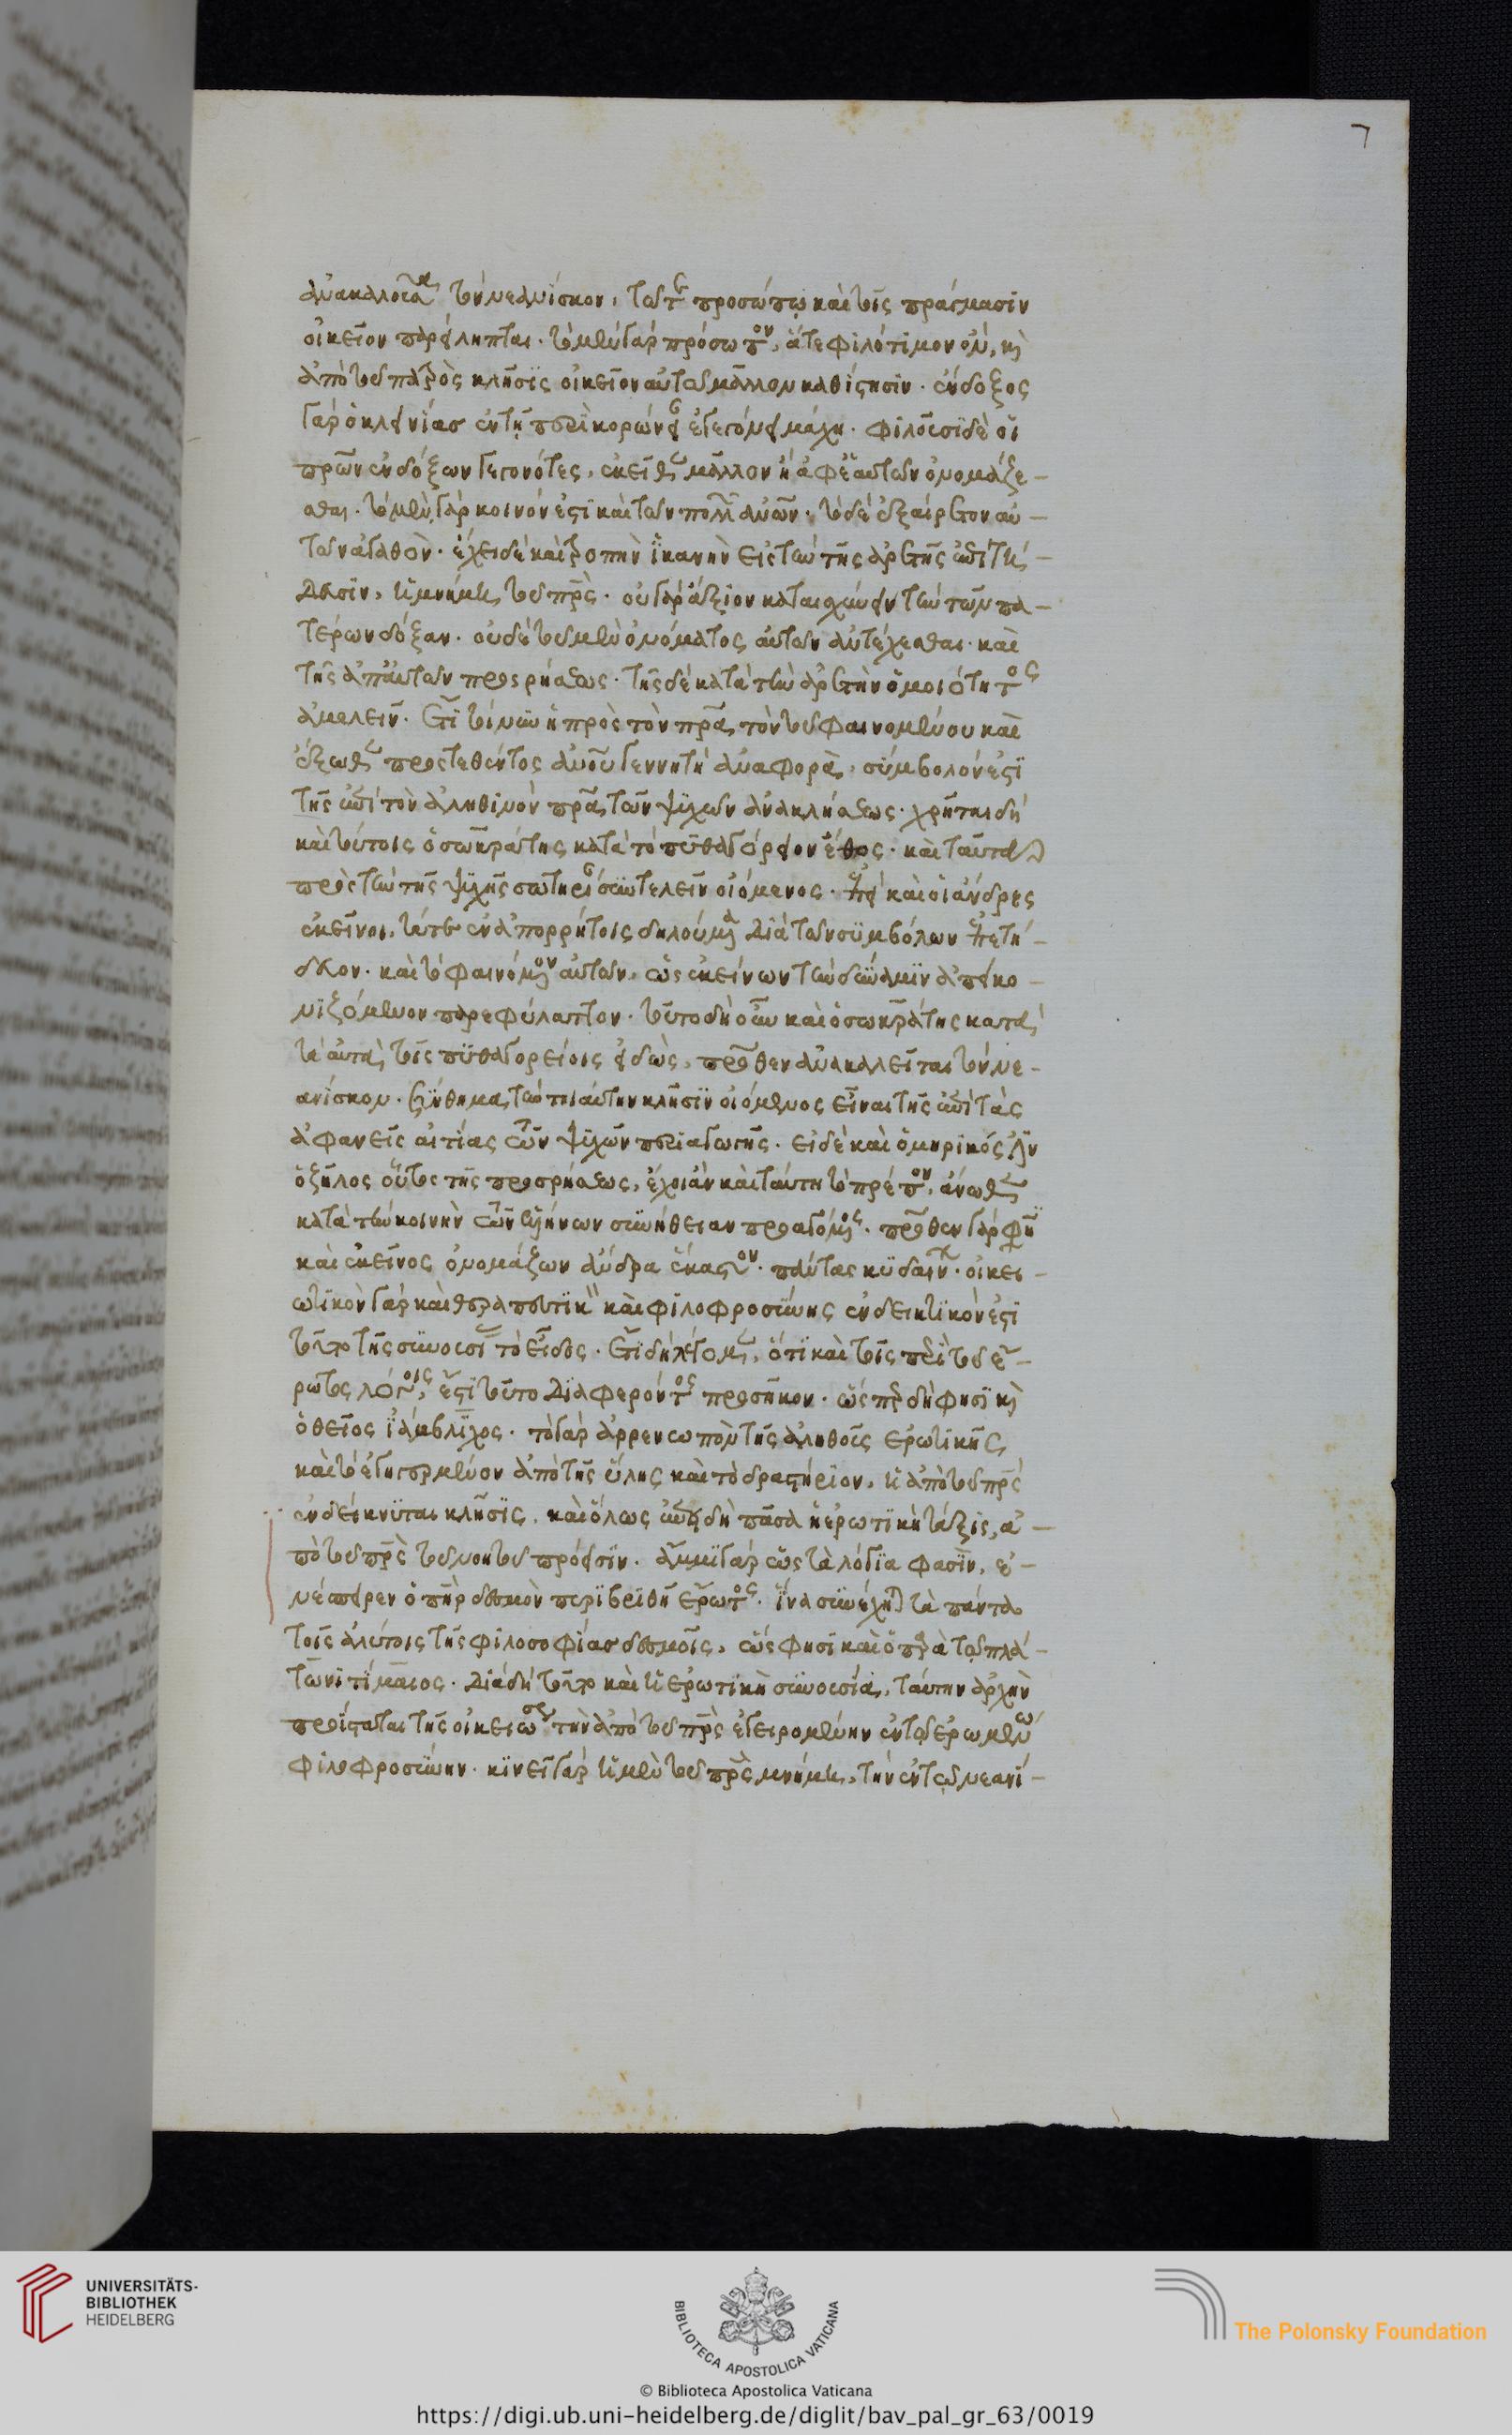 οἰκεῖον παρείληπται. τὸ μὲν γὰρ πρόσωπον, ἅτε φιλότιμον ὄν, καὶ
ἀπὸ τοῦ πατρὸς κλῆσις οἰκεῖον αὐτῶ μᾶλλον καθίστησιν. ἔνδοξος
γὰρ ὁ κλεινίας ἐν τῇ περὶ κορώνειαν ἐγεγόνει μάχη. φιλοῦσι δὲ οἱ
πρῶν ἐνδόξων γεγονότες, ἐκεῖθεν μᾶλλον ἢ ἀφ' ἑαυτῶν ὀνομάζε-
σθαι. τὸ μὲν γὰρ κοινόν ἐστι καὶ τῶν πολλῶν ἀνθρώπων. τὸ δὲ ἐξαίρετον αὐ-
τῶν ἀγαθὸν. ἔχει δὲ καὶ ῥοπὴν ἱκανὴν εἰς τὴν τῆς ἀρετῆς ἐπιτή-
δευσιν, ἡ μνήμη τοῦ πατρὸς. οὐ γὰρ ἄξιον καταισχύνειν τὴν τῶν πα-
τέρων δόξαν. οὐδὲ τοῦ μὲν ὀνόματος αὐτῶν ἀντέχεσθαι. καὶ
τῆς ἀπ' αὐτῶν προσρήσεως. τῆς δὲ κατὰ τὴν ἀρετὴν ὁμοιότητος
ἀμελεῖν. ἔτι τοίνυν ἡ πρὸς τὸν πατέρα τὸν τοῦ φαινομένου καὶ
ἔξωθεν προστεθέντος ἀνθρώπου ἀναφορὰ, σύμβολόν ἐστι
τῆς ἐπὶ τὸν ἀληθινὸν πατέρα τῶν ψυχῶν ἀνακλήσεως. χρῆται δὴ
καὶ τούτοις ὁ σωκράτης κατὰ τὸ πυθαγόρειον ἔθος. καὶ ταῦτα
πρὸς τὴν τῆς ψυχῆς σωτηρίαν συντελεῖν οἰόμενος. ἐπεὶ καὶ οἱ ἄνδρες
ἐκεῖνοι, τό τε ἐν ἀπορρήτοις δηλούμενον διὰ τῶν συμβόλων ἐπετή-
δευον. καὶ τὸ φαινόμενον αὐτῶν, ὡς ἐκείνων τὴν δύναμιν ἀπεικο-
νιζόμενον παρεφύλαττον. τοῦτο δὴ οὖν καὶ ὁ σωκράτης κατὰ
τὰ αὐτὰ τοῖς πυθαγορείοις εἰδὼς, πατρόθεν ἀνακαλεῖται τὸν νε-
ανίσκον. σύνθημα τὴν τοιαύτην κλῆσιν οἰόμενος εἶναι τῆς ἐπὶ τὰς
ἀφανεῖς αἰτίας τῶν ψυχῶν περιαγωγῆς. εἰ δὲ καὶ ὁμηρικός ἐστιν
ὁ ζῆλος οὗτος τῆς προσρήσεως, ἔχοι ἂν καὶ ταύτη τὸ πρέπον, ἄνωθεν
κατὰ τὴν κοινὴν τῶν ἑλλήνων συνήθειαν προαγόμενος. πατρόθεν γάρ φησι
καὶ ἐκεῖνος ὀνομάζων ἄνδρα ἕκαστον. πάντας κυδαίνων. οἰκει-
ωτικὸν γὰρ καὶ θεραπευτικὸν καὶ φιλοφροσύνης ἐνδεικτικόν ἐστι
τοῦτο τῆς συνουσίας τὸ εἶδος. ἔτι δὴ λέγομεν, ὅτι καὶ τοῖς περὶ τοῦ ἔ-
ρωτος λόγοις, ἐστὶ τοῦτο διαφερόντως προσῆκον. ὥσπερ δή φησι καὶ
ὁ θεῖος ἰάμβλιχος. τὸ γὰρ ἀρρενωπὸν τῆς ἀληθοῦς ἐρωτικῆς
καὶ τὸ ἐγηγερμένον ἀπὸ τῆς ὕλης καὶ τὸ δραστήριον, ἡ ἀπὸ τοῦ πατρὸς
ἐνδείκνυται κλῆσις. καὶ ὅλως ἐπειδὴ πᾶσα ἡ ἐρωτικὴ τάξις, ἀ-
πὸ τοῦ πατρὸς τοῦ νοητοῦ πρόεισιν. ἅμμι γὰρ ὡς τὰ λόγια φασὶν, ἐ-
νέσπειρεν ὁ πατὴρ δεσμὸν περιβριθῆ ἔρωτος. ἵνα συνέχηται τὰ πάντα
τοῖς ἀλύτοις τῆς φιλοσοφίας δεσμοῖς, ὥς φησι καὶ ὁ παρὰ τῶ πλά-
τωνι τίμαιος. διὰ δὴ τοῦτο καὶ ἡ ἐρωτικὴ συνουσία, ταύτην ἀρχὴν
προίσταται τῆς οἰκειώσεως τὴν ἀπὸ τοῦ πατρὸς ἐγειρομένην ἐν τῶ ἐρωμένω
φιλοφροσύνην. κινεῖ γὰρ ἡ μὲν τοῦ πατρὸς μνήμη, τὴν ἐν τῶ νεανί-
7
UNIVERSITÄTS-
BIBLIOTHEK
HEIDELBERG
BIBLIOTECA APOSTOLICA VATICANA
The Polonsky Foundation
© Biblioteca Apostolica Vaticana
https://digi.ub.uni-heidelberg.de/diglit/bav_pal_gr_63/0019